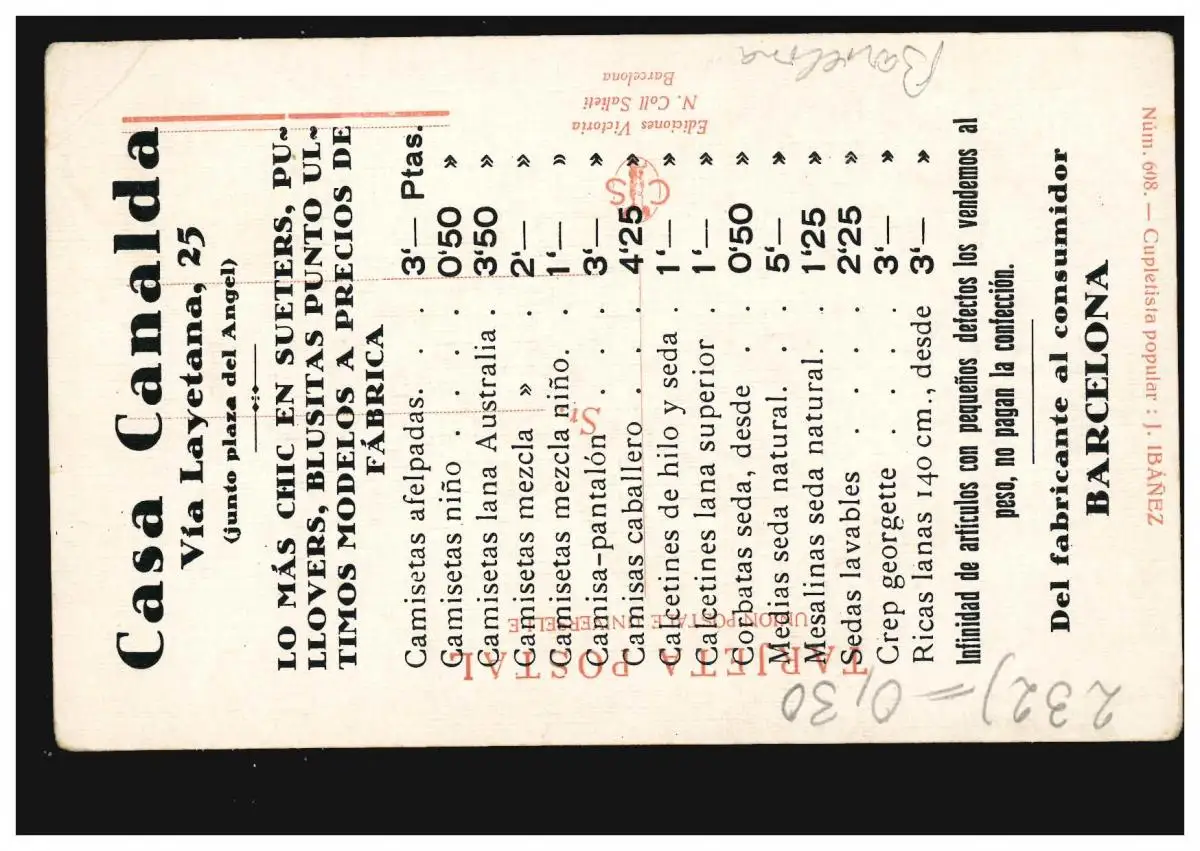 Casa Canalda
Vía Layetana, 25
(junto plaza del Angel)
LO MÁS CHIC EN SUETERS, PU~
LLOVERS, BLUSITAS PUNTO UL~
TIMOS MODELOS A PRECIOS DE
FÁBRICA
Camisetas afelpadas. . . . 3'— Ptas.
Camisetas niño . . . . . 0'50 »
Camisetas lana Australia . 3'50 »
Camisetas mezcla » 2'— »
Camisetas mezcla niño. . 1'— »
Camisa-pantalón . . . . 3'— »
Camisas caballero . . . . 4'25 »
Calcetines de hilo y seda . 1'— »
Calcetines lana superior . 1'— »
Corbatas seda, desde . . 0'50 »
Medias seda natural. . . 5'— »
Mesalinas seda natural. . 1'25 »
Sedas lavables . . . . . 2'25 »
Crep georgette . . . . . 3'— »
Ricas lanas 140 cm., desde 3'— »
Infinidad de artículos con pequeños defectos los vendemos al
peso, no pagan la confección.
Del fabricante al consumidor
BARCELONA
Núm. 608. — Cupletista popular : J. IBÁÑEZ
TARJETA POSTAL
UNION POSTALE UNIVERSELLE
Ediciones Victoria
N. Coll Salieti
Barcelona
Barcelona
232) = 0,30